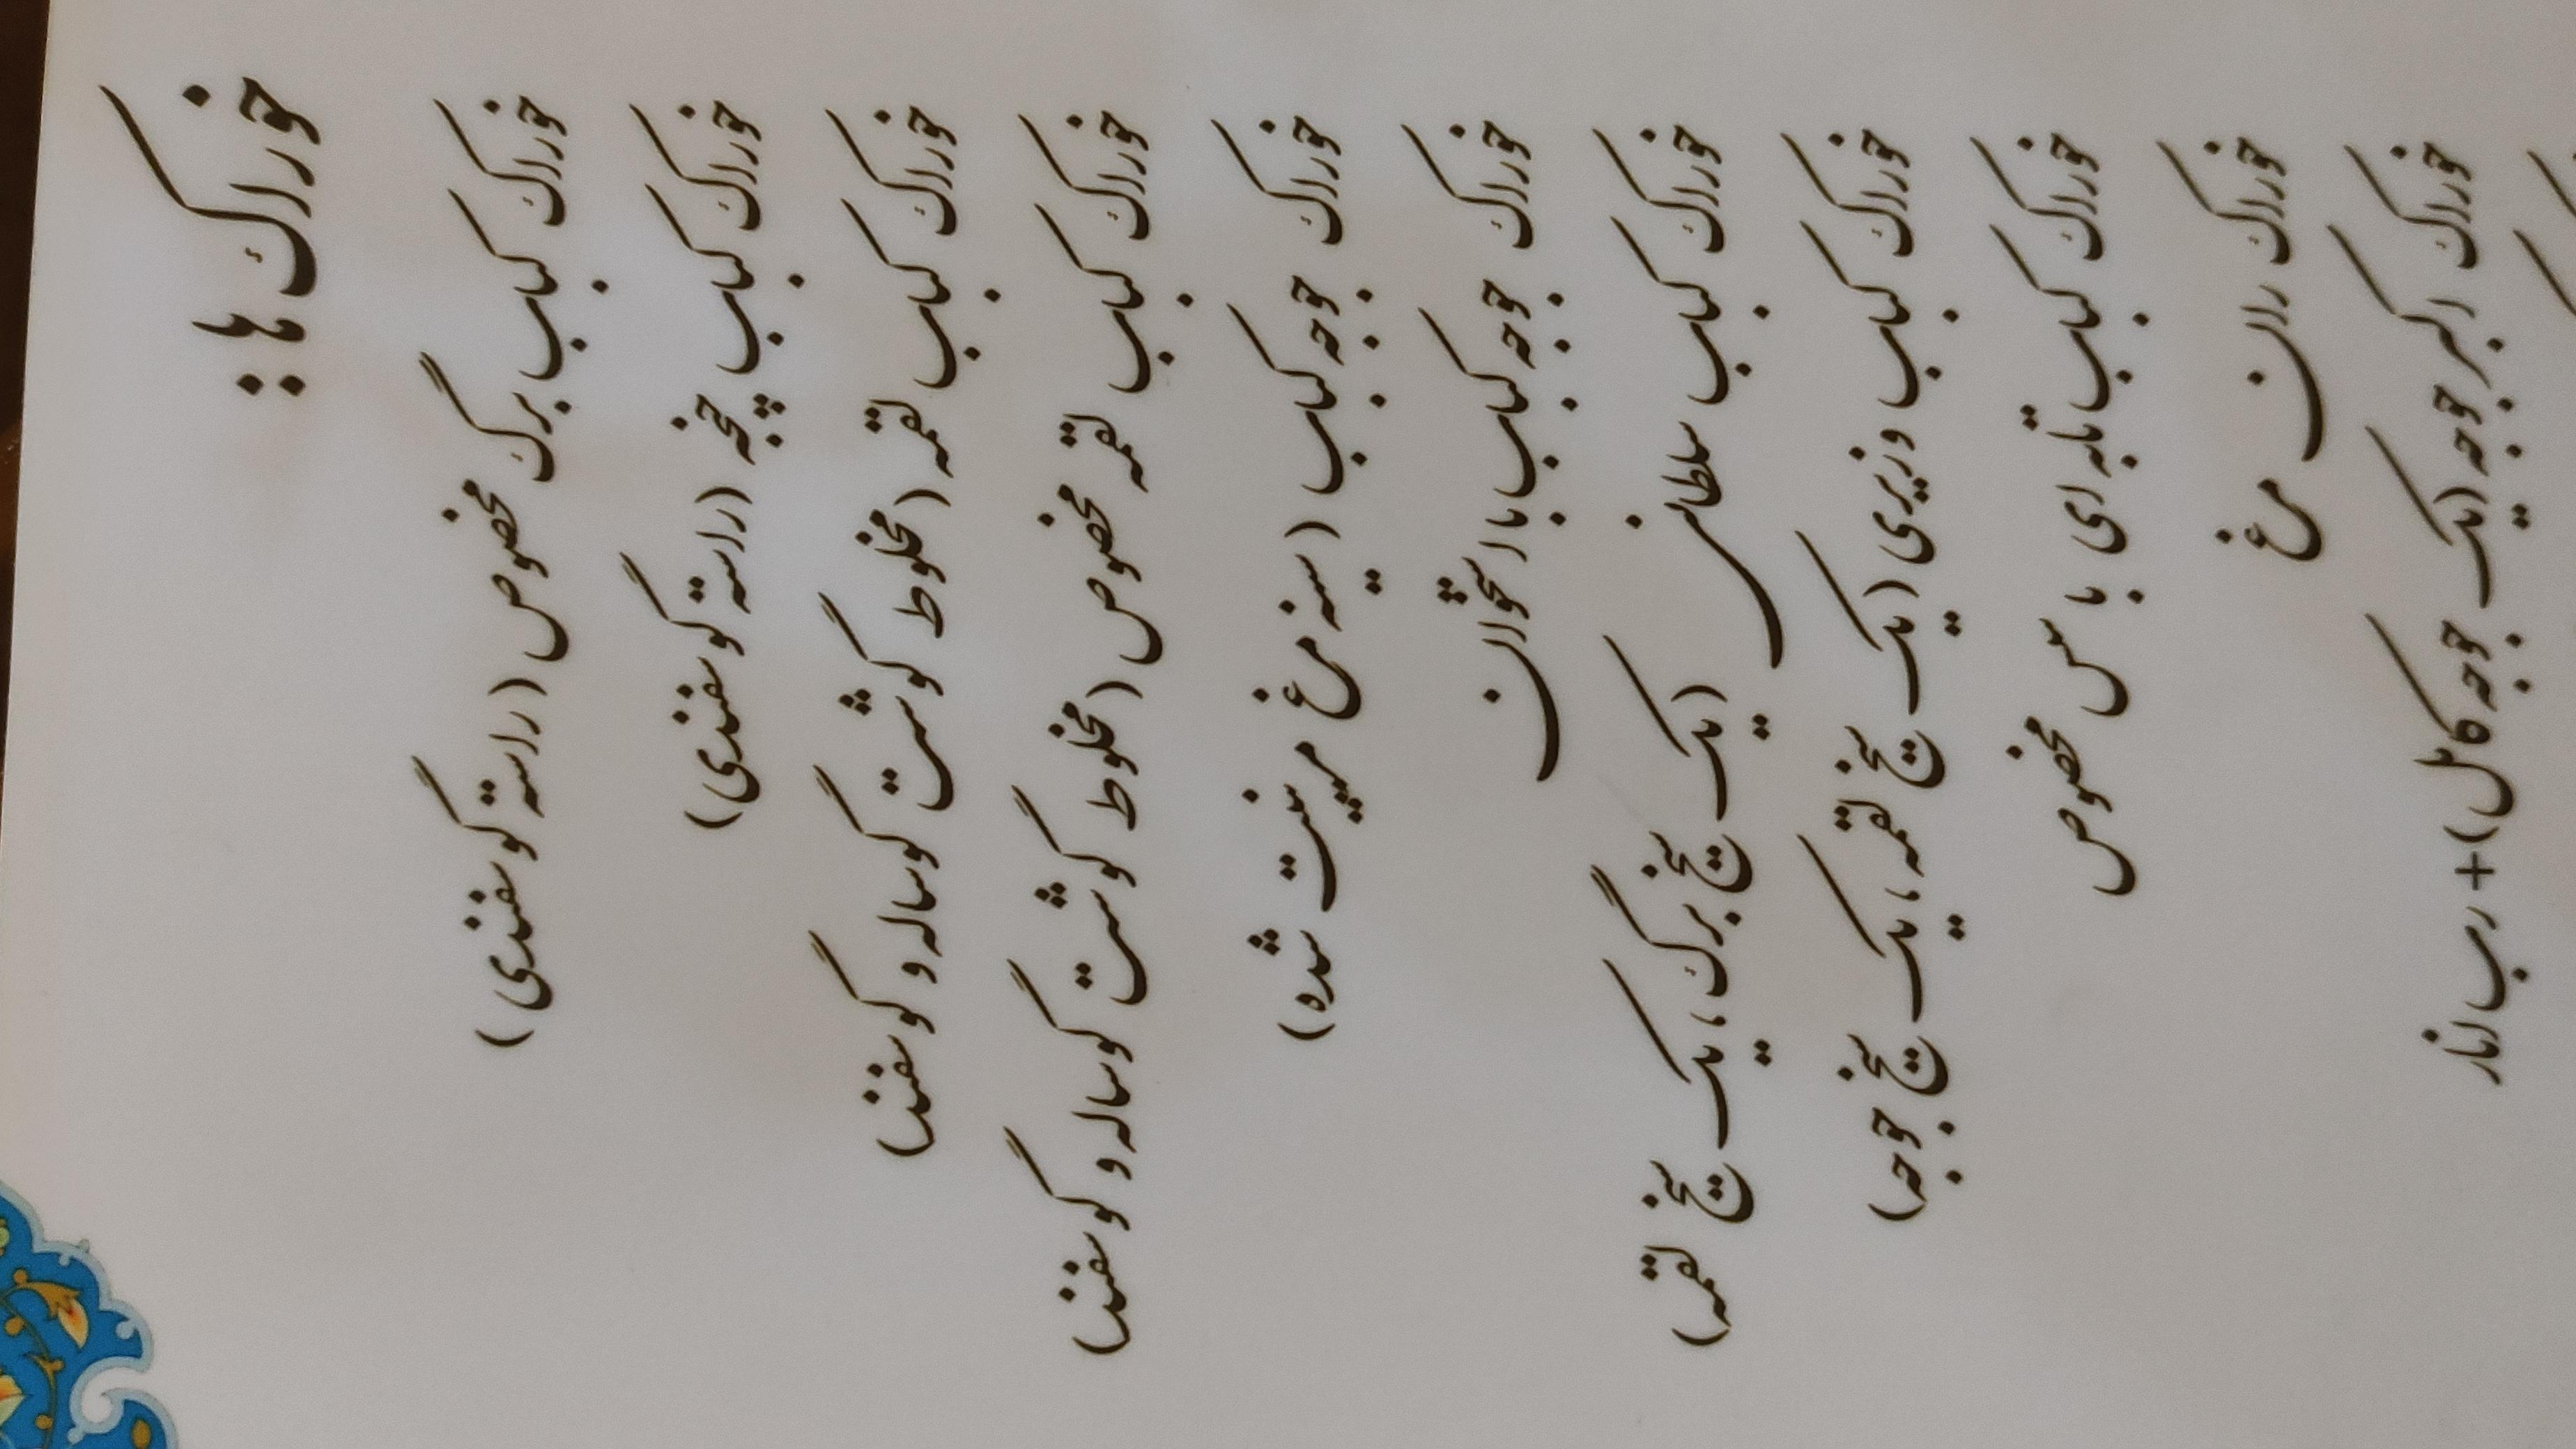 خوراک ها:
خوراک کباب برگ مخصوص (راسته گوسفندی)
خوراک کباب چنجه (راسته گوسفندی)
خوراک کباب لقمه (مخلوط گوشت گوساله و گوسفند)
خوراک کباب لقمه مخصوص (مخلوط گوشت گوساله و گوسفند)
خوراک جوجه کباب (سینه مرغ مرینیت شده)
خوراک جوجه کباب با استخوان
خوراک کباب سلطانی (یک سیخ برگ، یک سیخ لقمه)
خوراک کباب وزیری (یک سیخ لقمه، یک سیخ جوجه)
خوراک کباب تابه ای با سس مخصوص
خوراک ران مرغ
خوراک اکبر جوجه (یک جوجه کامل) + رب انار